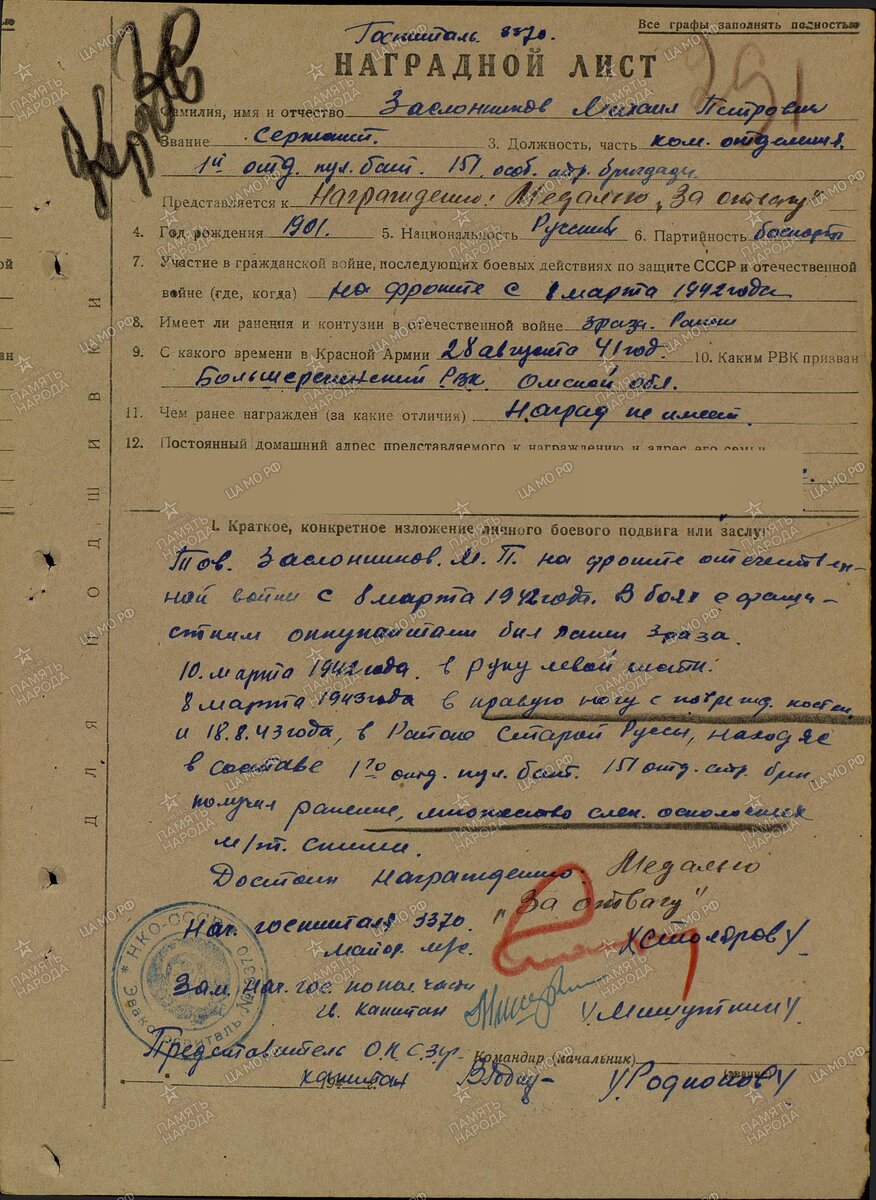 Все графы заполнять полностью
Госпиталь 3370.
НАГРАДНОЙ ЛИСТ
Фамилия, имя и отчество Заслонников Михаил Питрович
Звание Сержант. 3. Должность, часть ком. отделения.
1й отд. пул. бат. 151 особ. стр. бригады
Представляется к Награждению: Медалью „За отвагу"
4. Год рождения 1901. 5. Национальность Русский 6. Партийность беспарт
7. Участие в гражданской войне, последующих боевых действиях по защите СССР и отечественной
войне (где, когда) на фронте с 8 марта 1942 года
8. Имеет ли ранения и контузии в отечественной войне 3 раза. Ранен
9. С какого времени в Красной Армии 28 августа 41 год. 10. Каким РВК призван
Большереченский Рвк. Омской обл.
11. Чем ранее награжден (за какие отличия) Наград не имеет.
12. Постоянный домашний адрес представляемого к награждению и адрес его семьи
I. Краткое, конкретное изложение личного боевого подвига или заслуг
Тов. Заслонников. М. П. на фронте отечествен-
ной войны с 8 марта 1942 года. В боях с фаши-
сткими оккупантами был ранен 3 раза.
10. марта 1942 года. в руку левой кисти.
8 марта 1943 года в правую ногу с поврежд. костей.
и 18.8.43 года, в Районе Старой Руссы, находяс
в составе 1го отд. пул. бат. 151 отд. стр. бри
получил ранение, множество слеп. осколочных
м/т. спины.
Достоин Награждению. Медалью
"За отвагу"
Нач. госпиталя 3370.
Майор. м/с. /Столяров/
Зам. нач. гос. по полит части
Капитан /Мишуткин/
Представитель О.К.С.З.Ф. Командир (начальник)
капитан /Родионов/
ДЛЯ ПОДШИВКИ
НКО-СССР
Эвакогоспиталь № 3370
ПАМЯТЬ НАРОДА
ЦАМО.РФ